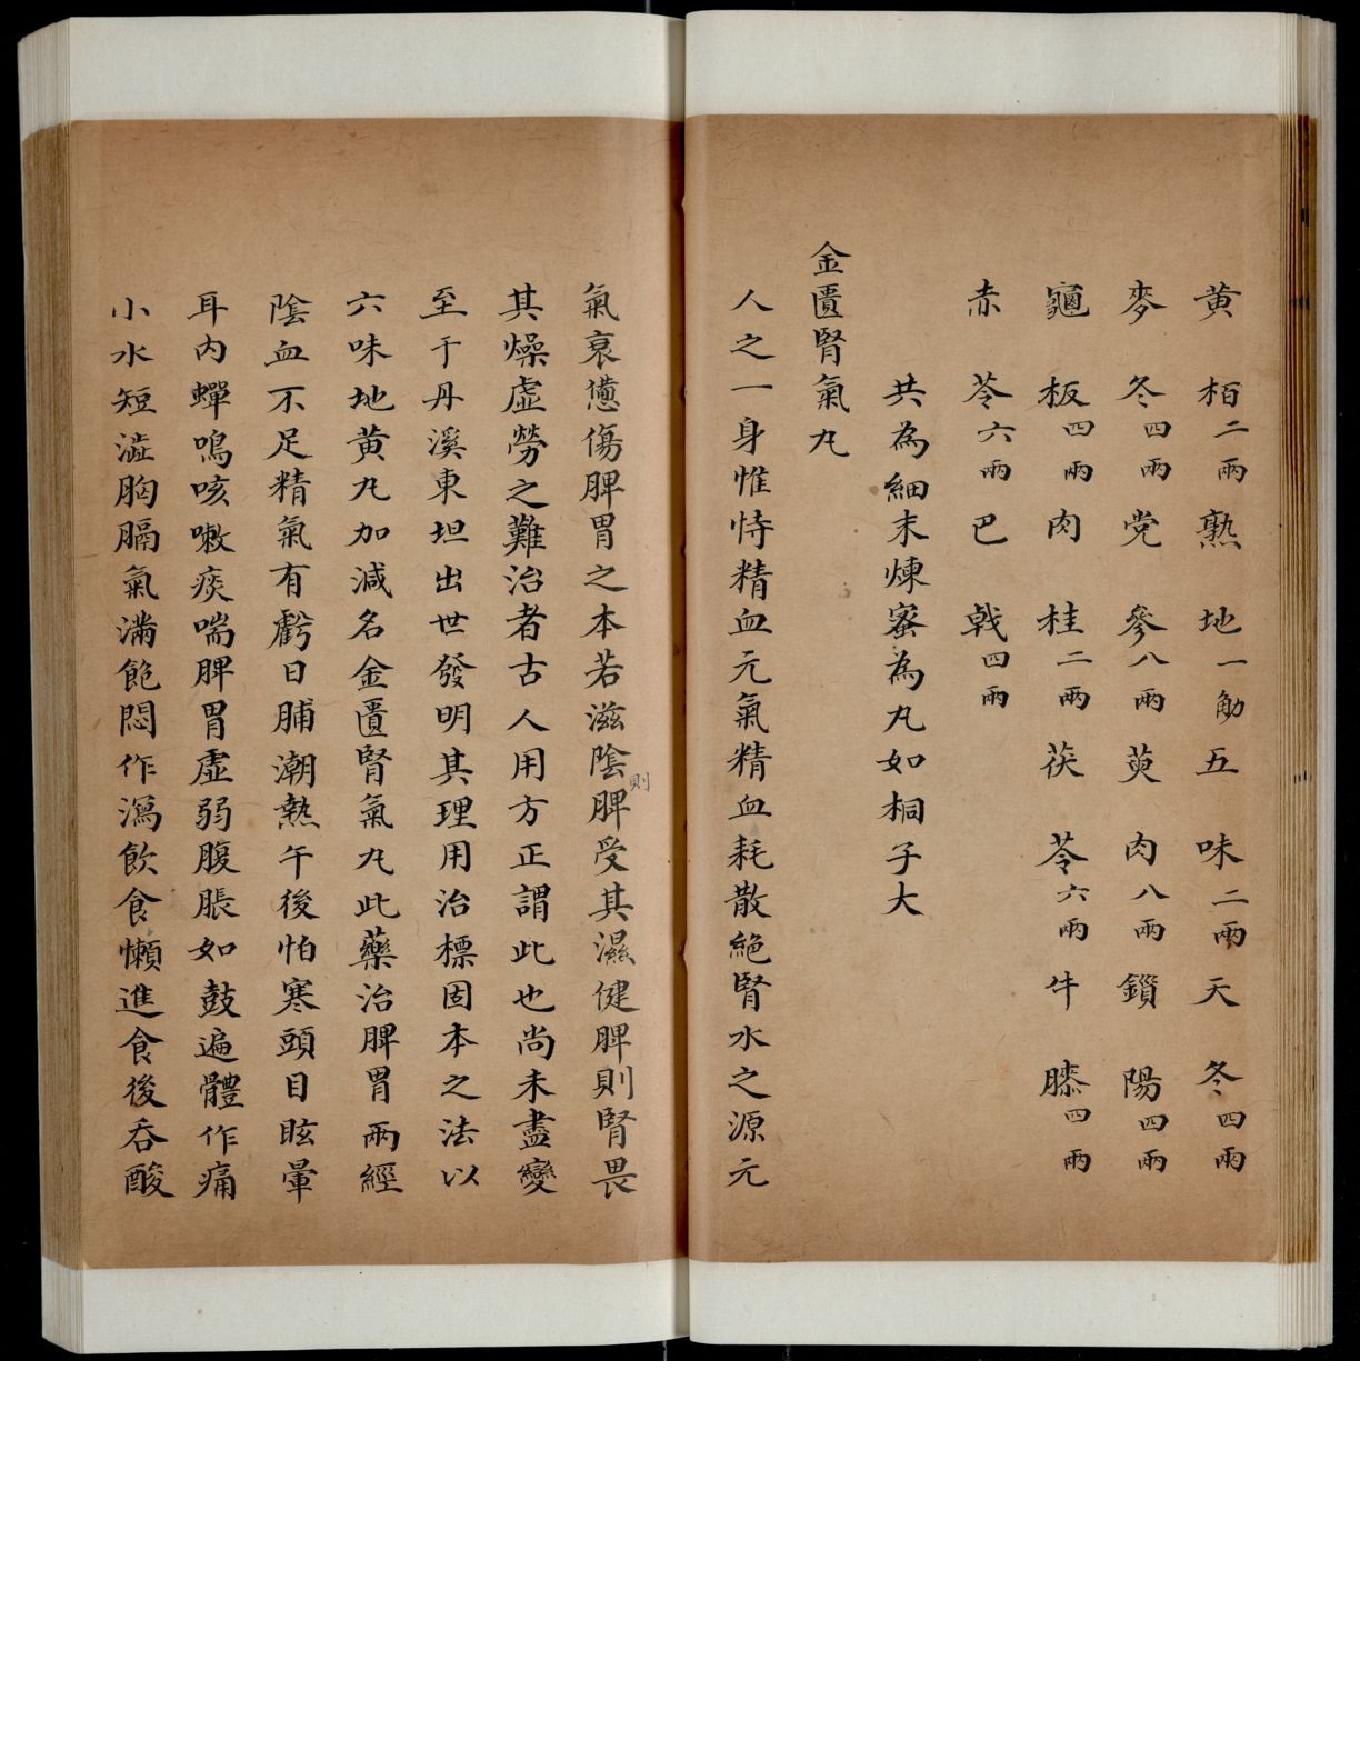 黄栢二兩熟地一觔五味二兩天冬四兩
麥冬四兩党參八兩萸肉八兩鎖陽四兩
龜板四兩肉桂二兩茯苓六兩牛膝四兩
赤苓六兩巴戟四兩
共為細末煉蜜為丸如桐子大
金匱腎氣丸
人之一身惟恃精血元氣精血耗散絕腎水之源元
氣衰憊傷脾胃之本若滋陰則脾受其濕健脾則腎畏
其燥虛勞之難治者古人用方正謂此也尚未盡變
至于丹溪東坦出世發明其理用治標固本之法以
六味地黄丸加減名金匱腎氣丸此藥治脾胃兩經
陰血不足精氣有虧日脯潮熱午後怕寒頭目眩暈
耳內蟬鳴咳嗽痰喘脾胃虛弱腹脹如鼓遍體作痛
小水短澁胸膈氣滿飽悶作瀉飲食懶進食後吞酸